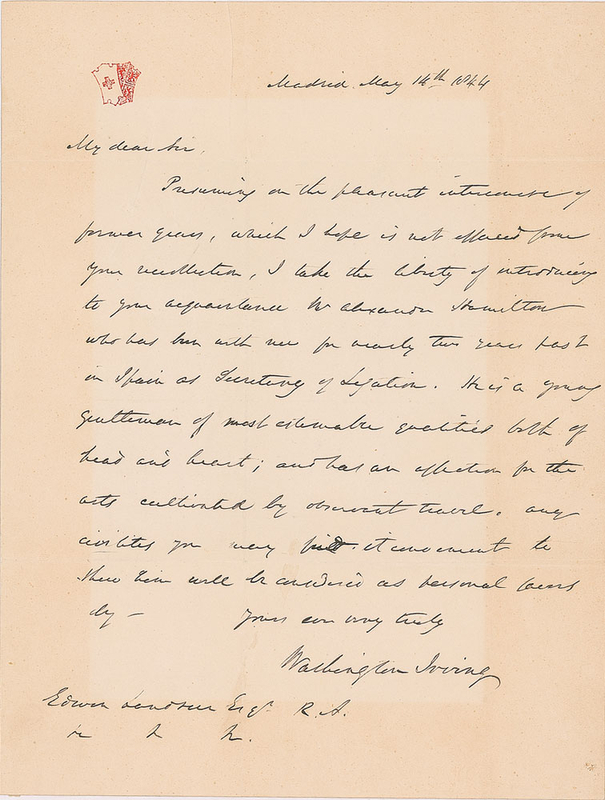 Madrid May 14th 1844
My dear Sir,
Presuming on the pleasant intercourse of
former years, which I hope is not effaced from
your recollection, I take the liberty of introducing
to your acquaintance Mr Alexander Hamilton
who has been with me for nearly two years past
in Spain as Secretary of Legation. He is a young
gentleman of most estimable qualities both of
head and heart; and has an affection for the
arts cultivated by observant travel. Any
civilities you may find it convenient to
shew him will be considered as personal favors
by —
Yours ever very truly
Washington Irving
Edwin Landseer Esqr. R. A.